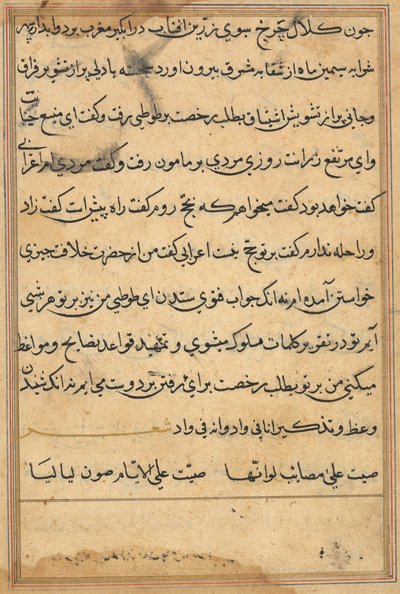 چون کلال چرخ سبوی زرین افتاب در ابگیر مغرب برد و ابدارچه
شرابه سیمین ماه از سقابه شرق بیرون اورد خجسته با دلی پر از شور فراق
و جانی پر از تشویش اشتیاق بطلب رخصت بر طوطی رفت و کفت ای منبع
و ای مرتفع روزی مردی بر مامون رفت و کفت مردی ام اعرابی
کفت خواهد بود کفت میخواهم که بحج روم کفت راه پیش است کفت زاد
و راحله ندارم کفت بر تو حج نیست اعرابی کفت من از حضرت خلافت چیزی
خواستن آمده ام نه انک جواب فتوی ستدن ای طوطی من نیز بر تو هر شبی
آیم تو در کلمات میشوی و تمهید قواعد نصایح و مواعظ
میکنی من بر تو بطلب رخصت برای رفتن بر دوست می ایم نه انک شنیدن
وعظ و تذکیر انا فی واد وانه فی واد شعر
صبت علی مصایب لوانها صبت علی الایام صون لیالیا